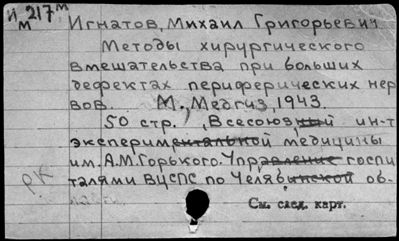 И 217м
м
Игнатов, Михаил Григорьевич
Методы хирургического
вмешательства при больших
дефектах периферических нер
вов. М., Медгиз, 1943.
50 стр. (Всесоюзный ин-т
экспериментальной медицины
им. А.М. Горького. Управление госпи
талями ВЦСПС по Челябинской об-
РК
См. след. карт.